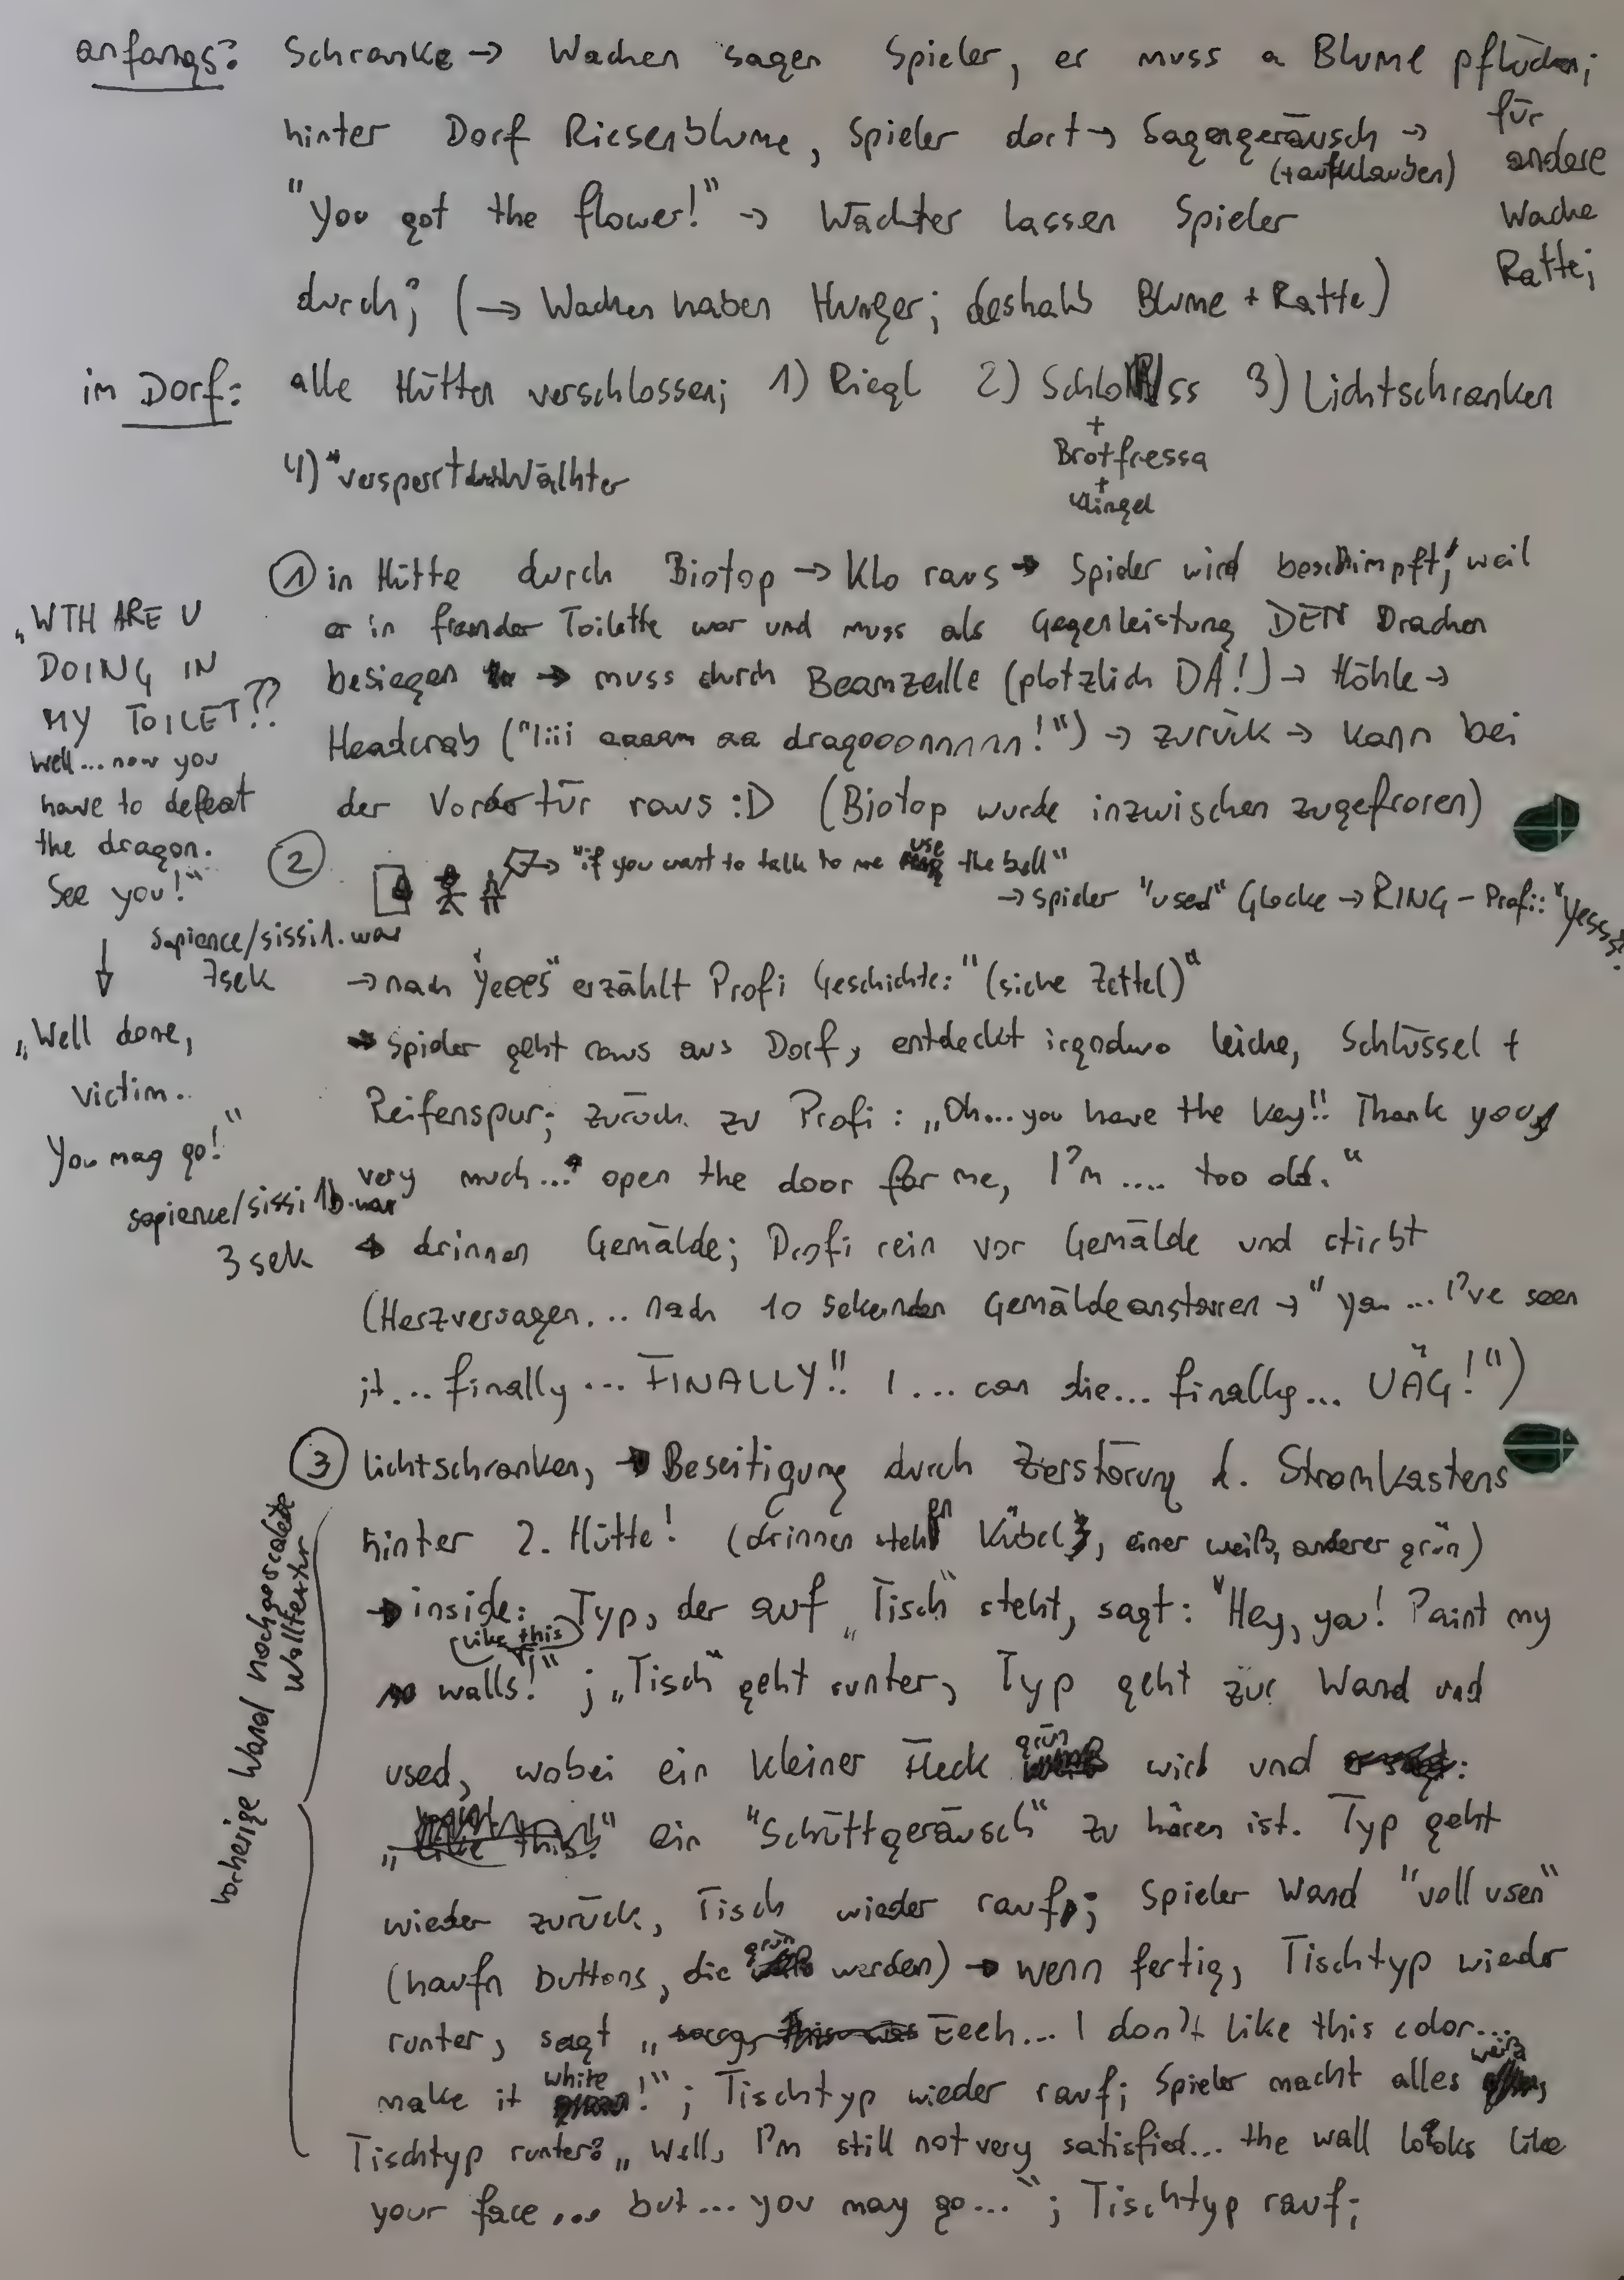 anfangs: Schranke → Wachen sagen Spieler, er muss a Blume pflücken;
für andere Wache Ratte;
hinter Dorf Riesenblume, Spieler dort → Sagengeräusch →
(+aufklauben)
"You got the flower!" → Wächter lassen Spieler
durch; (→ Wachen haben Hunger; deshalb Blume + Ratte)
im Dorf: alle Hütten verschlossen; 1) Riegl 2) Schloss 3) Lichtschranken
+
Brotfressa
+
Klingel
4) versperrt durch Wächter
① in Hütte durch Biotop → Klo raus → Spieler wird beschimpft, weil
er in fremder Toilette war und muss als Gegenleistung DEN Drachen
besiegen → muss durch Beamzelle (plötzlich DA!) → Höhle →
Headcrab ("Iiii aaaam aa dragooonnnnn!") → zurück → kann bei
der Vordertür raus :D (Biotop wurde inzwischen zugefroren)
„WTH ARE U
DOING IN
MY TOILET??
Well... now you
have to defeat
the dragon.
See you!"
sapience/sissi1.wav
7sek
„Well done,
victim..
You may go!"
sapience/sissi1b.wav
3 sek
② → "if you want to talk to me use the bell"
→ Spieler "used" Glocke → RING - Profi: "Yessss!
→ nach "Yeees" erzählt Profi Geschichte: "(siehe Zettel)"
→ Spieler geht raus aus Dorf, entdeckt irgendwo Leiche, Schlüssel +
Reifenspur; zurück zu Profi: „Oh... you have the key!! Thank you
very much... open the door for me, I'm .... too old."
→ drinnen Gemälde; Profi rein vor Gemälde und stirbt
(Herzversagen... nach 10 Sekunden Gemäldeanstarren → "ya... I've seen
it... finally... FINALLY!! I... can die... finally... UÄG!")
③ Lichtschranken, → Beseitigung durch Zerstörung d. Stromkastens
hinter 2. Hütte! (drinnen stehen Kübel, einer weiß, anderer grün)
→ inside: Typ, der auf „Tisch" steht, sagt: "Hey, you! Paint my
(like this)
walls!" ; „Tisch" geht runter, Typ geht zur Wand und
used, wobei ein kleiner Fleck grün wird und
ein "Schüttgeräusch" zu hören ist. Typ geht
wieder zurück, Tisch wieder rauf; Spieler Wand "voll usen"
(haufn buttons, die grün werden) → wenn fertig, Tischtyp wieder
runter, sagt „Eeeh... I don't like this color...
make it white!"; Tischtyp wieder rauf; Spieler macht alles weiß,
Tischtyp runter: „Well, I'm still not very satisfied... the wall looks like
your face... but... you may go..."; Tischtyp rauf;
vorherige Wand noch
Walltextur